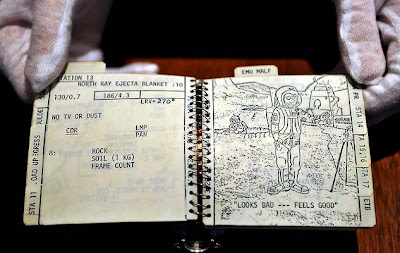 STATION 13
NORTH RAY EJECTA BLANKET :10
130/0.7 186/4.3 LRV=270°
NO TV OR DUST
CDR LMP
PAN
8: ROCK
SOIL (1 KG)
FRAME COUNT
STA 11
EMU MALF
"LOOKS BAD --- FEELS GOOD"
STA 14
15/16
STA 17
ETB